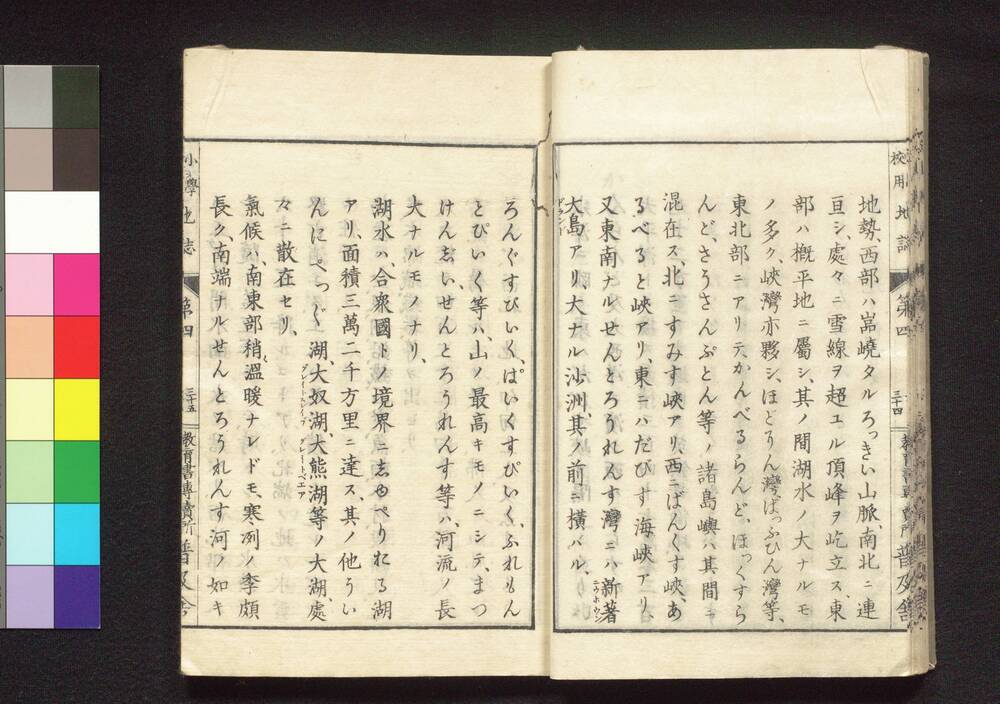 地勢、西部ハ嵓嶢タルろっきい山脈、南北ニ連
亘シ、處々ニ雪線ヲ超ユル頂峰ヲ屹立ス、東
部ハ槪平地ニ屬シ、其ノ間湖水ノ大ナルモ
ノ多ク、峽灣亦夥シ、ほどそん灣、ばっふひん灣等、
東北部ニアリテ、かんべるらんど、ほっくすら
んど、さうさんぷとん等ノ諸島嶼ハ其間ニ
混在ス、北ニすみす峽アリ、西ニばんくす峽、あ
るべると峽アリ、東ニハだびす海峽アリ、
又東南ナルせんとろうれんす灣ニハ、新著
大島アリ、大ナル沙洲、其ノ前ニ横バル、
校用 地誌 第四 三十四 普及舎
ろんぐすぴいく、ぱいくすぴいく、ふれもん
とぴいく等ハ、山ノ最高キモノニシテ、まつ
けんぢい、せんとろうれんす等ハ、河流ノ長
大ナルモノナリ、
湖水ハ、合衆國トノ境界ニ志ゆぺりおる湖
アリ、面積三萬二千方里ニ達ス、其ノ他うい
んにぺっぐ湖、大奴湖、大熊湖等ノ大湖、處
グレイトスレイブ グレートベエア
々ニ散在セリ、
氣候ハ、南東部稍溫暖ナレドモ、寒冽ノ季頗
長ク、南端ナルせんとろうれんす河ノ如キ
小學 地志 第四 三十五 教育書專賣所 普及舍